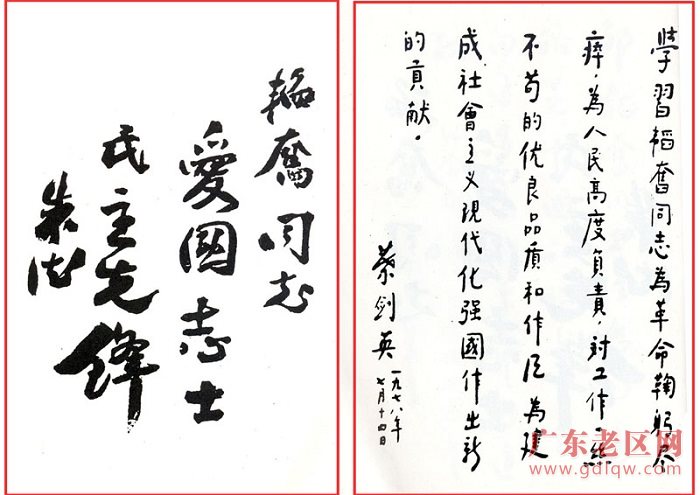 韜奮同志
愛國志士
民主先鋒
朱德
學習韜奮同志為革命鞠躬尽
瘁，為人民高度負責，对工作一絲
不苟的优良品質和作风為建
成社會主义現代化强國作出新
的貢献。
葉劍英
一九七八年
七月十四日
广东老区网
www.gdlqw.com